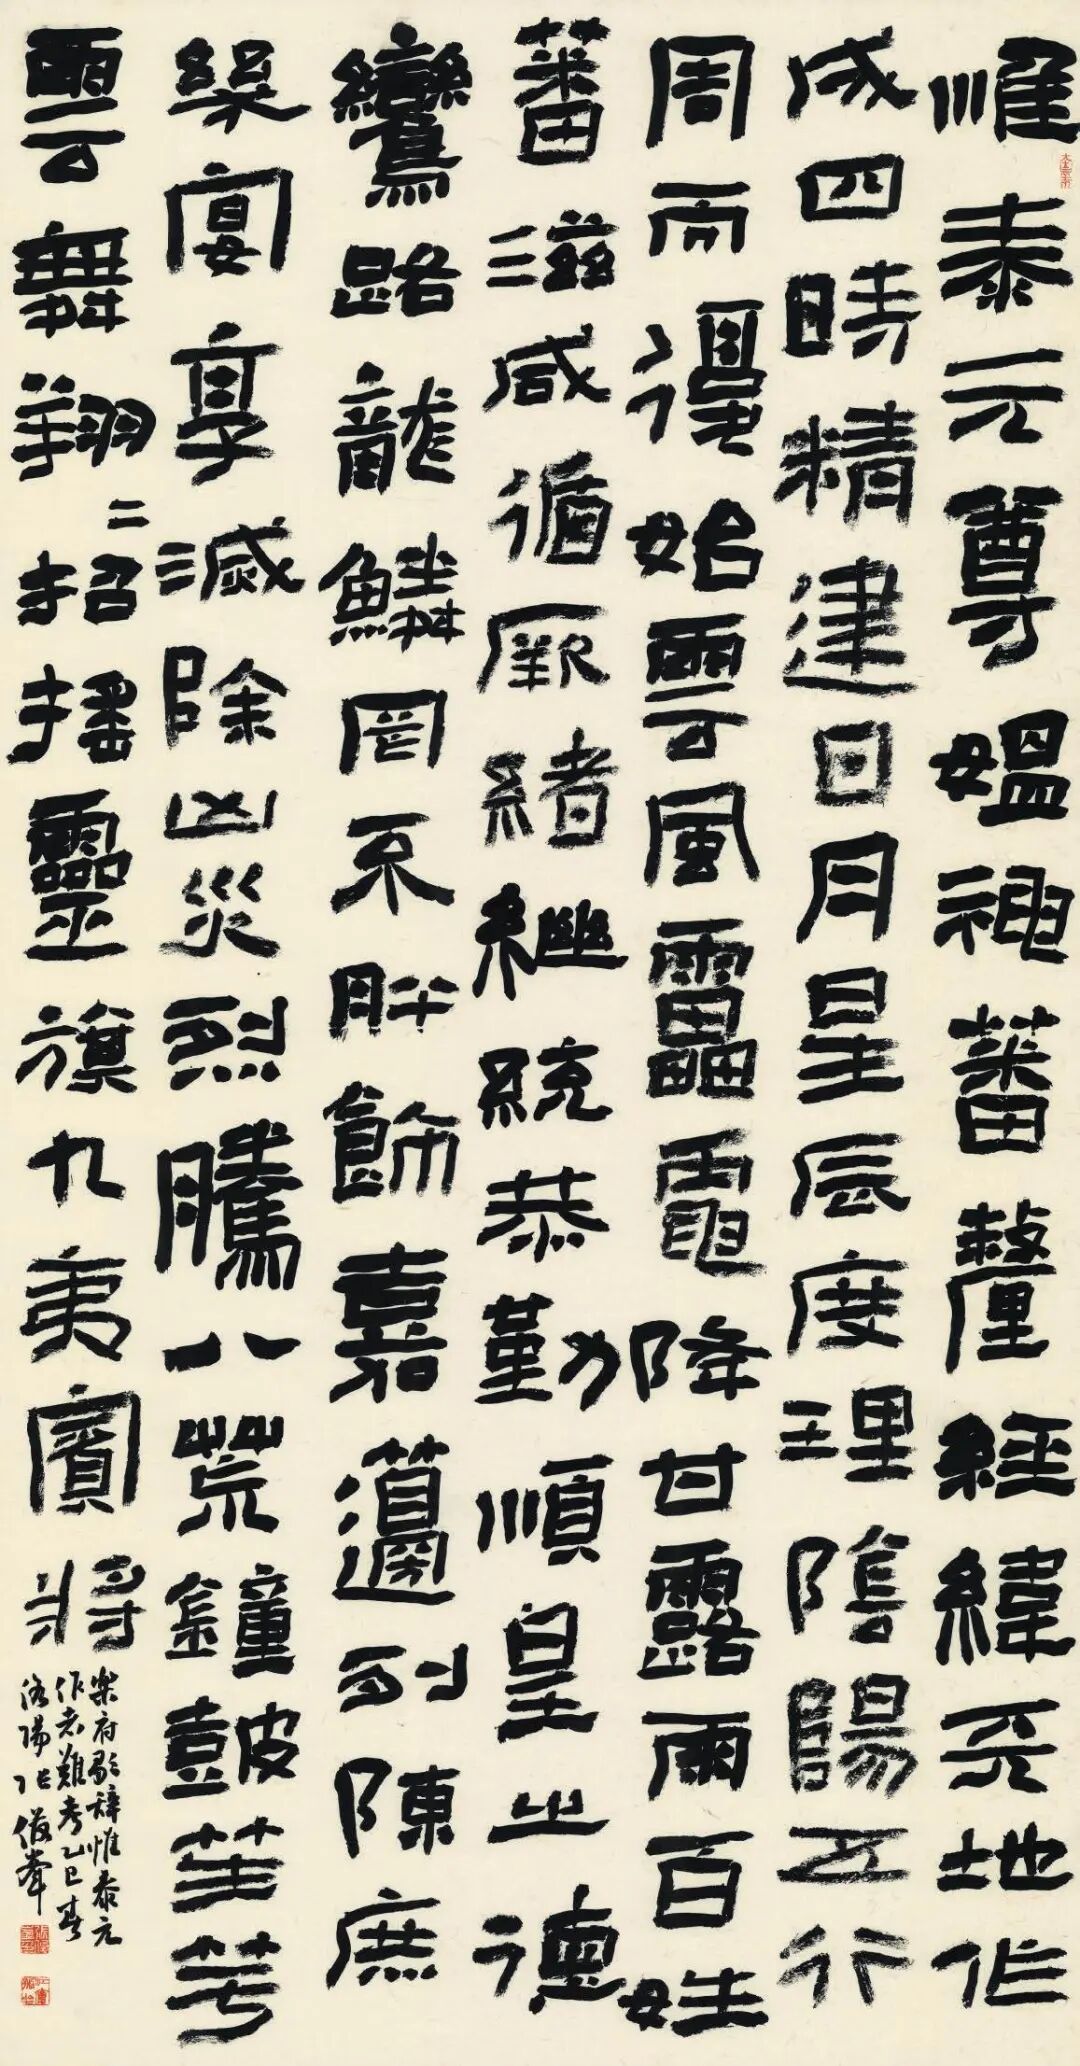 惟泰元尊媪神蕃釐經緯天地作
成四時精建日月星辰度理陰陽五行
周而復始雲風靁電降甘露雨百姓
蕃滋咸循厥緒繼統恭勤順皇之德
鸞路龍鱗罔不肸飾嘉籩列陳庶
幾宴享滅除凶災烈騰八荒鐘鼓笙竽
雲舞翔二招搖靈旗九夷賓將
樂府歌辭惟泰元
作者難考乙巳春
洛陽張俊峯